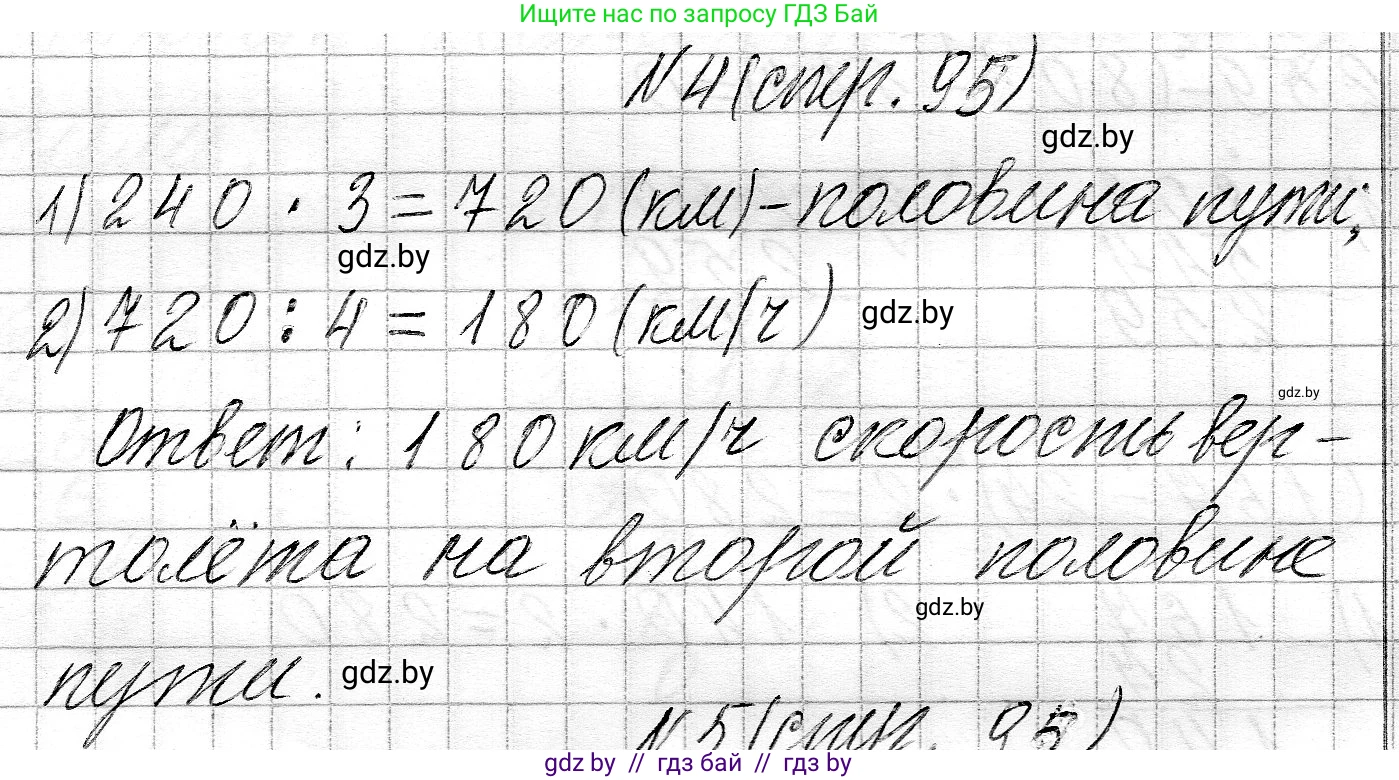 Ищите нас по запросу ГДЗ Бай
№4 (стр. 95)
gdz.by
1) 240 · 3 = 720 (км) - половина пути;
gdz.by
2) 720 : 4 = 180 (км/ч)
gdz.by
gdz.by
Ответ: 180 км/ч скорость вер-
толёта на второй половине
gdz.by
пути.
gdz.by
№5 (стр. 95)
gdz.by // гдз бай // гдз by